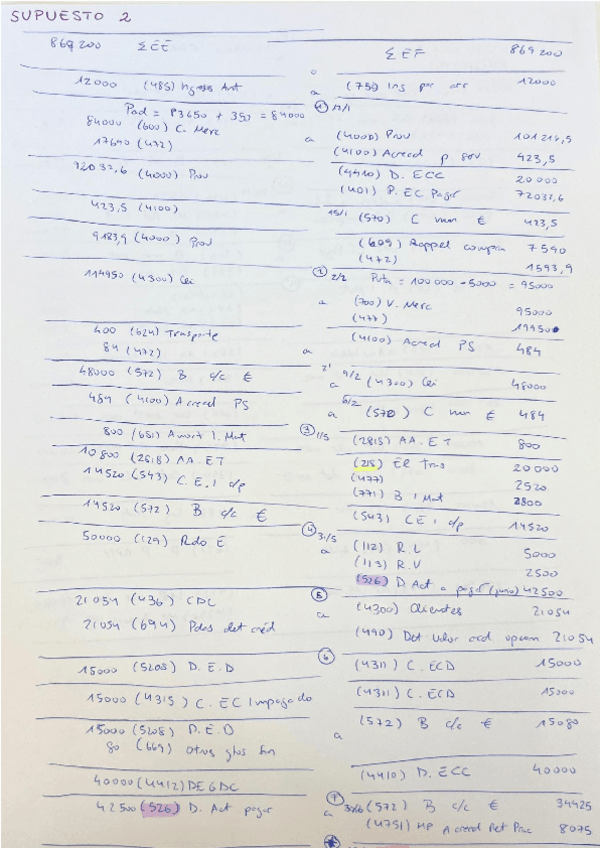 SUPUESTO 2
869200 ΣEE ΣEF 869200
12000 (485) Ingresos Ant a (75) Ing por arr 12000
① 17/1
Pad = 83650 + 350 = 84000
84000 (600) C. Merc a (4000) Prov 101214,5
17640 (472) (4100) Acreed p serv 423,5
92032,6 (4000) Prov (4410) D. ECC 20000
(401) P. EC Pagar 72032,6
423,5 (4100) 15/1 (570) C mon € 423,5
9183,9 (4000) Prov (609) Rappel compra 7590
(472) 1593,9
② 2/2 Pvta = 100000 - 5000 = 95000
114950 (4300) Cli a (700) V. Merc 95000
(477) 19950
400 (624) Transporte a (4100) Acreed PS 484
84 (472)
48000 (572) B c/c € a (4300) Cli 48000
484 (4100) Acreed PS a (570) C mon € 484
③ 1/5
800 (681) Amort I. Mat (2818) AA. ET 800
10800 (2818) AA. ET (218) ER Tras 20000
14520 (543) C. E. I c/p (477) 2520
(771) B I Mat 2800
14520 (572) B c/c € (543) CE I c/p 14520
④ 31/5
50000 (129) Rdo E a (112) R.L 5000
(113) R.V 2500
(526) D. Act a pagar (junio) 42500
⑤
21054 (436) CDC a (4300) Clientes 21054
21054 (694) Pdas det créd (490) Det valor cred opcom 21054
⑥
15000 (5208) D. E. D (4311) C. ECD 15000
15000 (4315) C. EC Impagado (4311) C. ECD 15000
15000 (5208) D. E. D a (572) B c/c € 15080
80 (669) Otros gtos fin
40000 (4412) DE GDC (4410) D. ECC 40000
⑦ 30/6
42500 (526) D. Act pagar a (572) B c/c € 34425
(4751) HP Acreed Ret Prac 8075